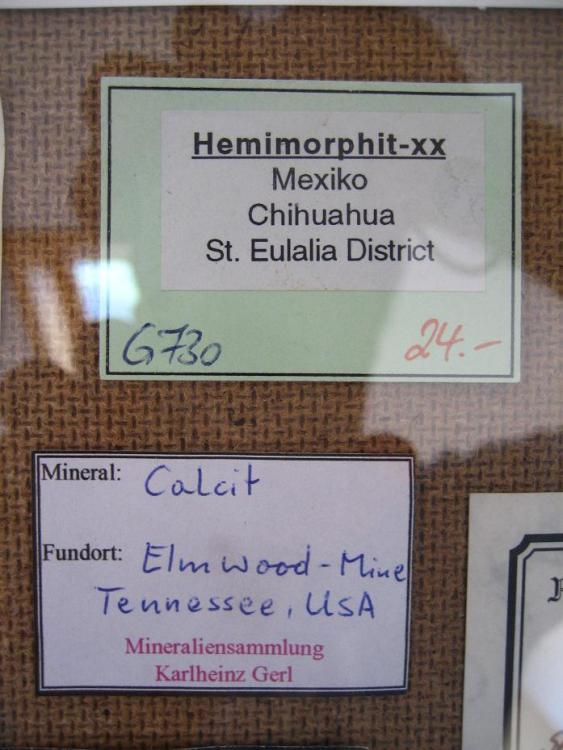 Hemimorphit-xx
Mexiko
Chihuahua
St. Eulalia District
G730 24.-
Mineral: Calcit
Fundort: Elmwood-Mine
Tennessee, USA
Mineraliensammlung
Karlheinz Gerl